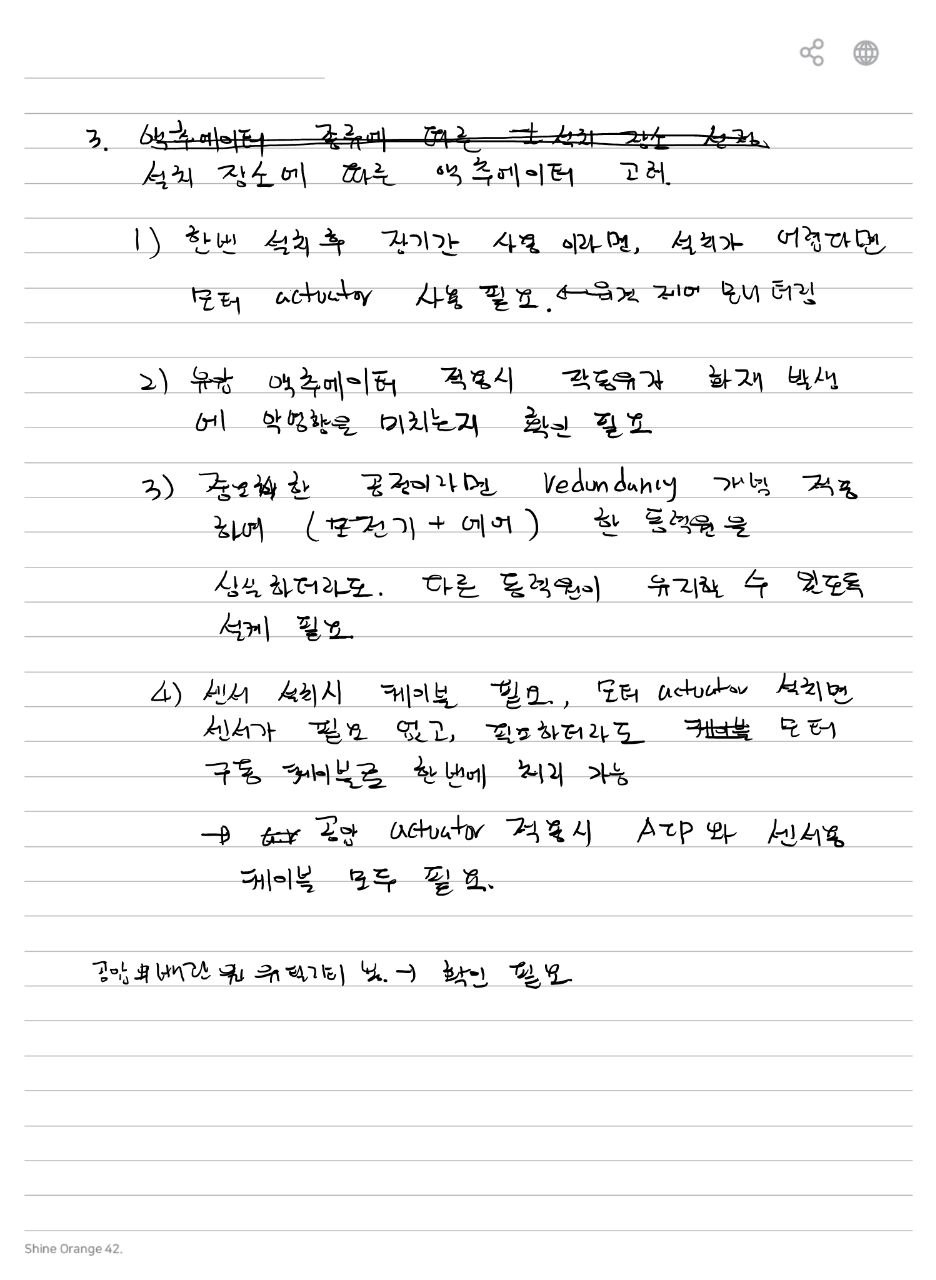 3. 액추에이터 종류에 따른 설치 장소 선정.
설치 장소에 따른 액추에이터 고려.
1) 한번 설치후 장기간 사용 이라면, 설치가 어렵다면
모터 actuator 사용 필요. ← 원격 제어 모니터링
2) 유압 액추에이터 적용시 작동유가 화재 발생
에 악영향을 미치는지 확인 필요
3) 중요한 공정이라면 redundancy 개념 적용
하여 (모전기 + 에어) 한 동력원을
상실하더라도. 다른 동력원이 유지할 수 있도록
설계 필요
4) 센서 설치시 케이블 필요., 모터 actuator 설치면
센서가 필요 없고, 필요하더라도 케이블 모터
구동 케이블로 한번에 처리 가능
→ 공압 actuator 적용시 Air와 센서용
케이블 모두 필요.
공압 배관 및 → 확인 필요